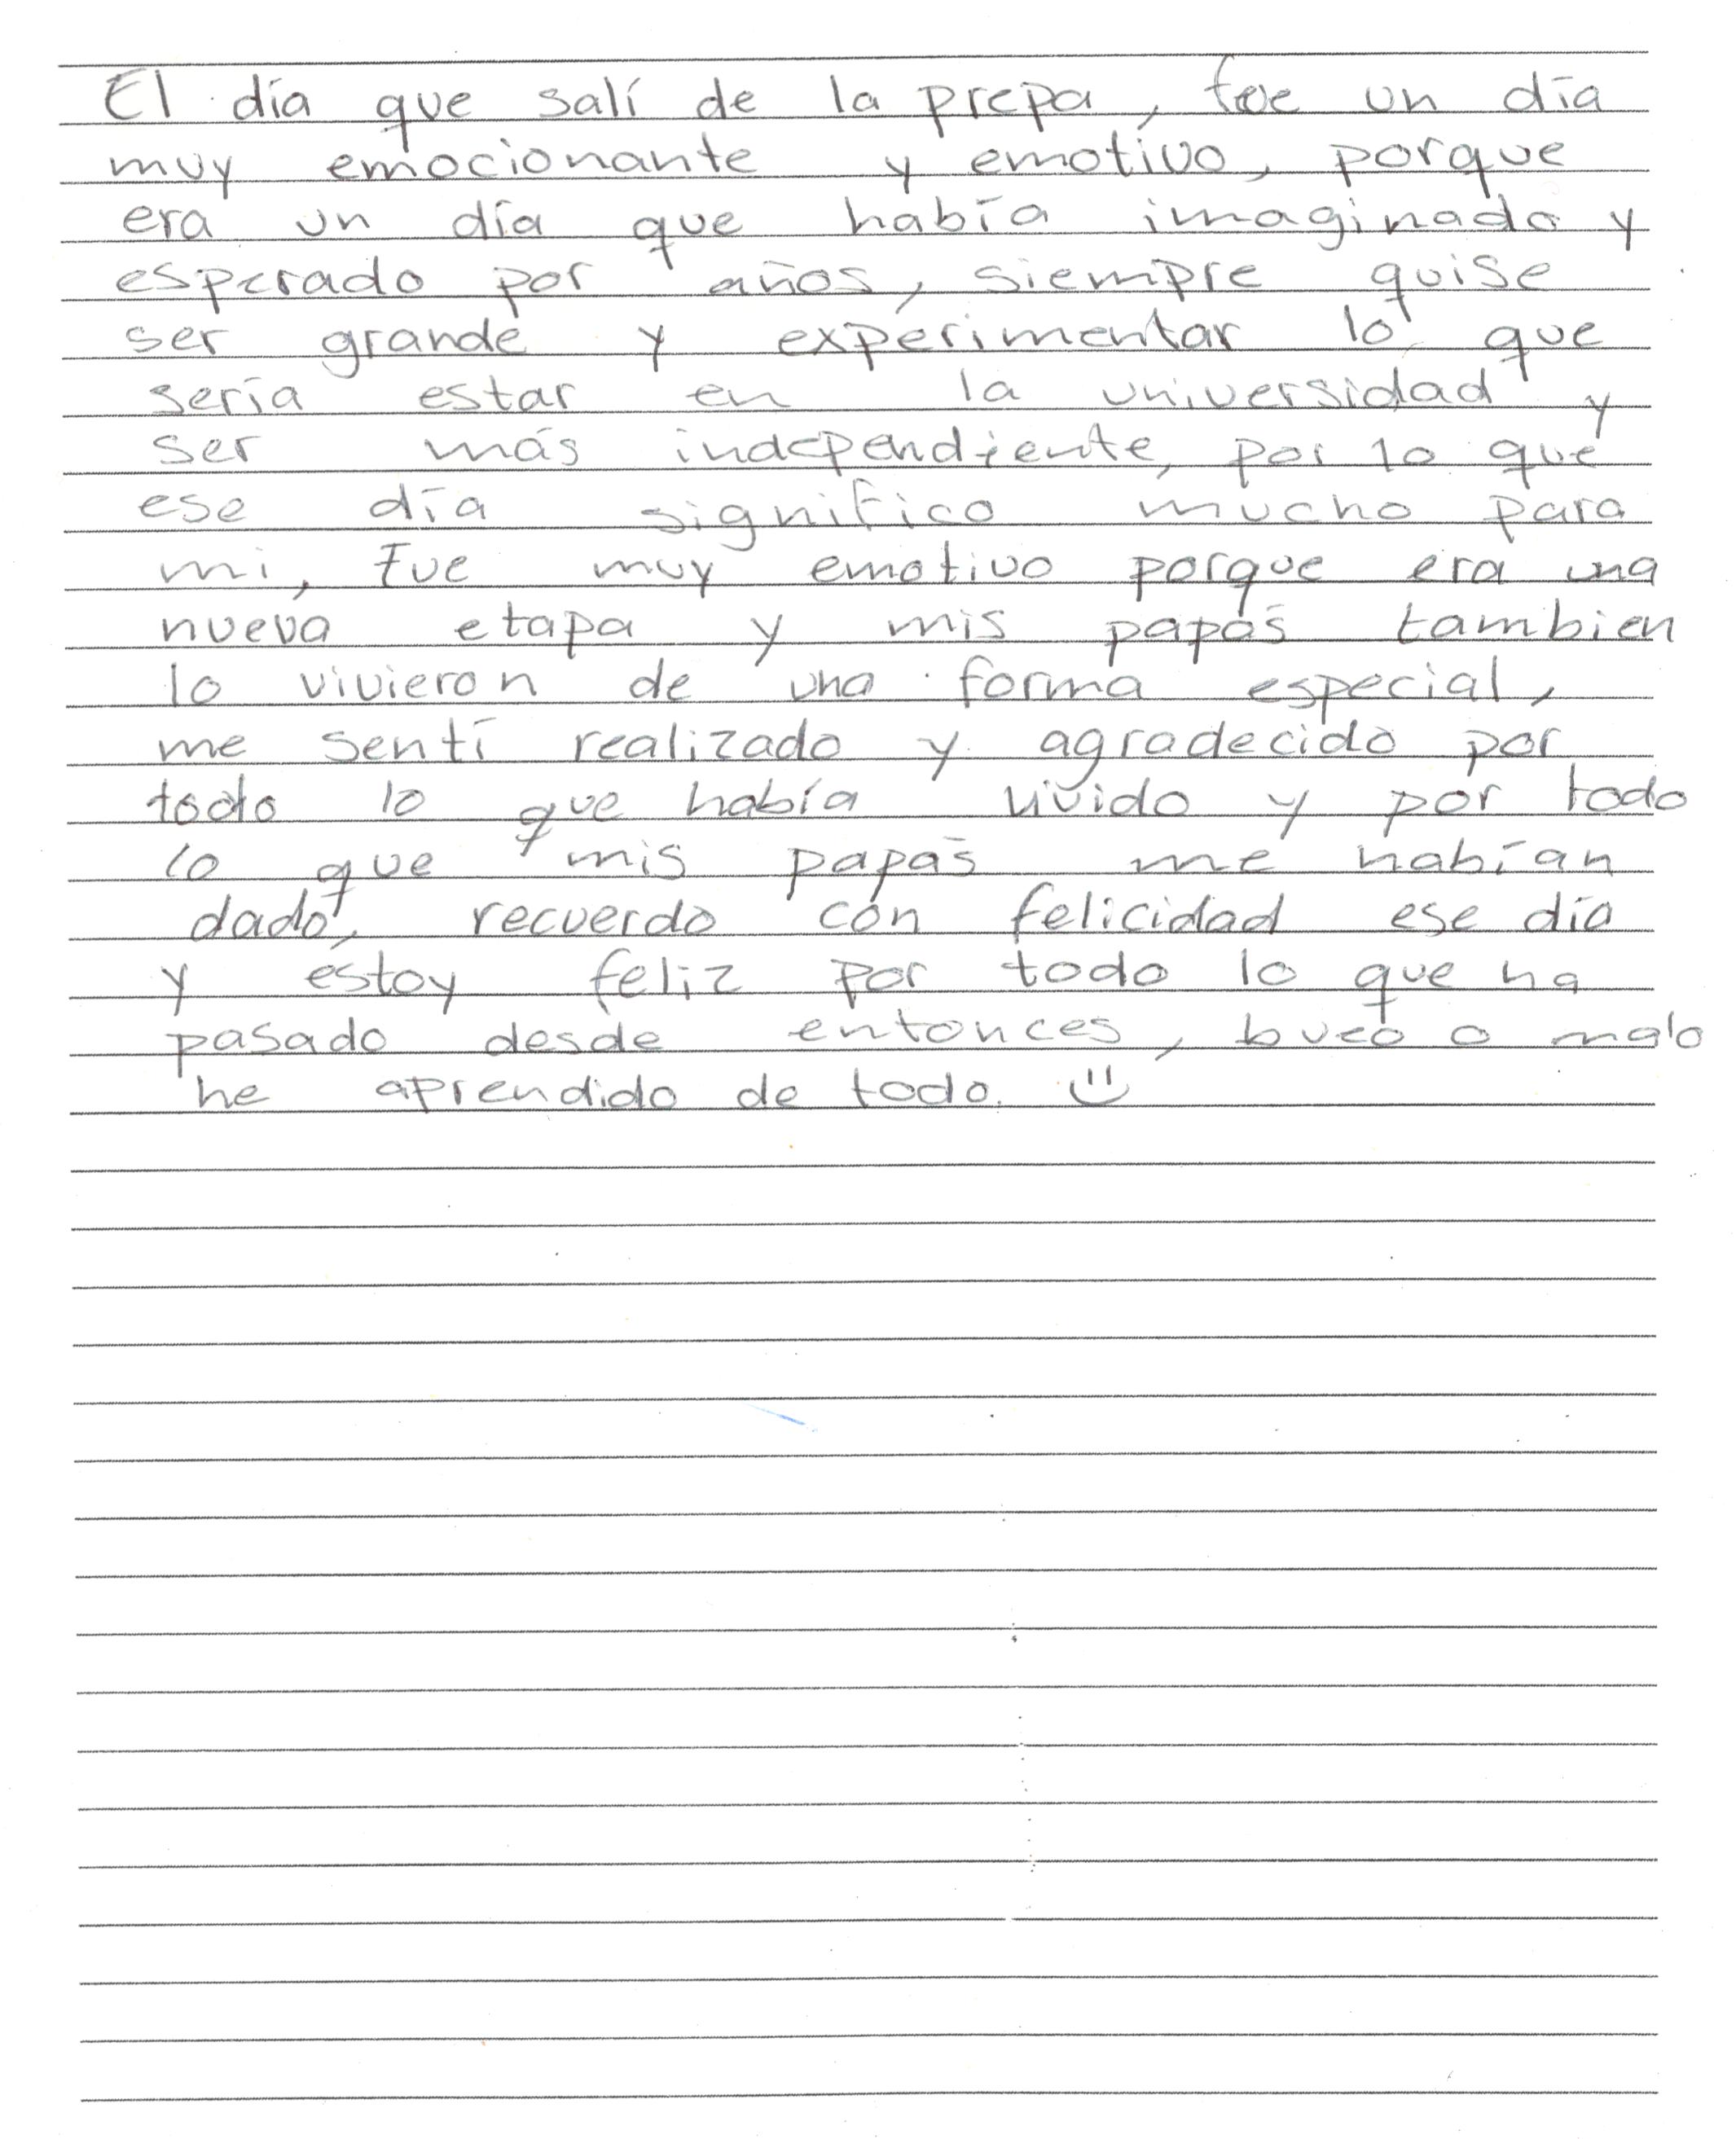 El día que salí de la prepa, fue un día
muy emocionante y emotivo, porque
era un día que había imaginado y
esperado por años, siempre quise
ser grande y experimentar lo que
sería estar en la universidad y
ser más independiente, por lo que
ese día significo mucho para
mi, fue muy emotivo porque era una
nueva etapa y mis papás tambien
lo vivieron de una forma especial,
me sentí realizado y agradecido por
todo lo que había vivido y por todo
lo que mis papás me habían
dado, recuerdo con felicidad ese día
y estoy feliz por todo lo que ha
pasado desde entonces, bueo o malo
he aprendido de todo. ツ